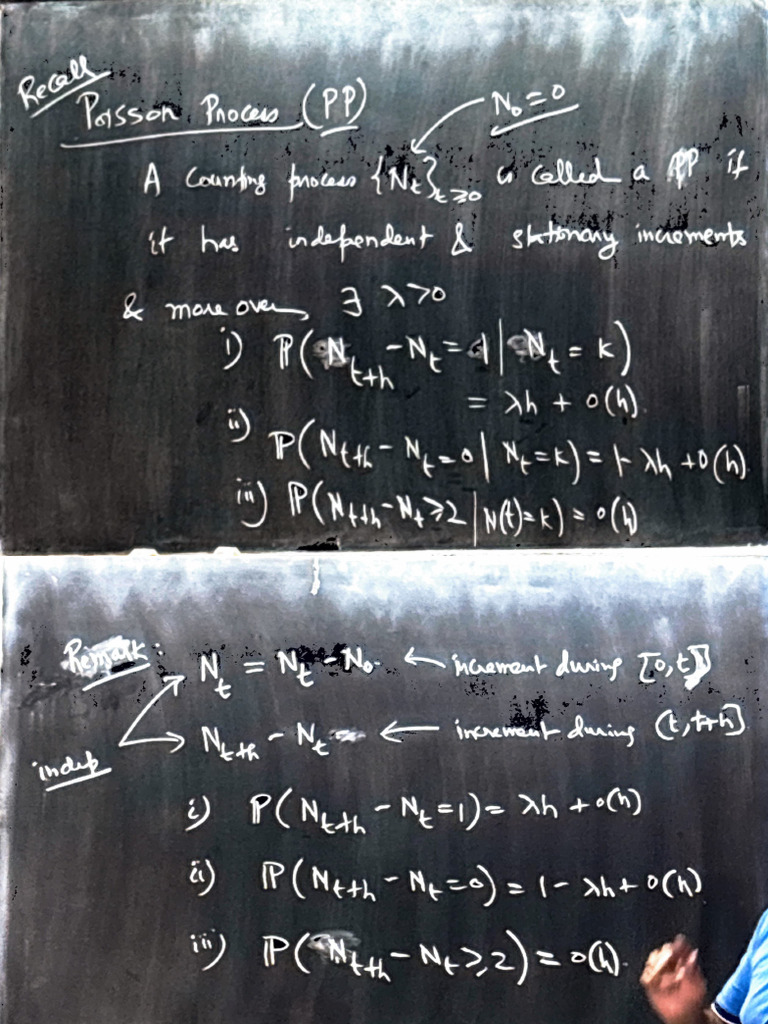 Recall
Poisson Process (PP)
N₀ = 0
A counting process {N_t}_{t≥0} is called a PP if
it has independent & stationary increments
& more over, ∃ λ>0
i) ℙ(N_{t+h} - N_t = 1 | N_t = k)
= λh + o(h).
ii) ℙ(N_{t+h} - N_t = 0 | N_t = k) = 1 - λh + o(h)
iii) ℙ(N_{t+h} - N_t ≥ 2 | N(t) = k) = o(h)
Remark:
N_t = N_t - N₀. ← increment during [0,t]
N_{t+h} - N_t ← increment during (t, t+h]
indep
i) ℙ(N_{t+h} - N_t = 1) = λh + o(h)
ii) ℙ(N_{t+h} - N_t = 0) = 1 - λh + o(h)
iii) ℙ(N_{t+h} - N_t ≥ 2) = o(h).